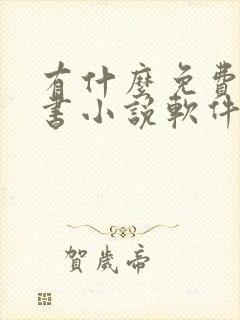 有什麼免費
書小說軟件
賀歲帝